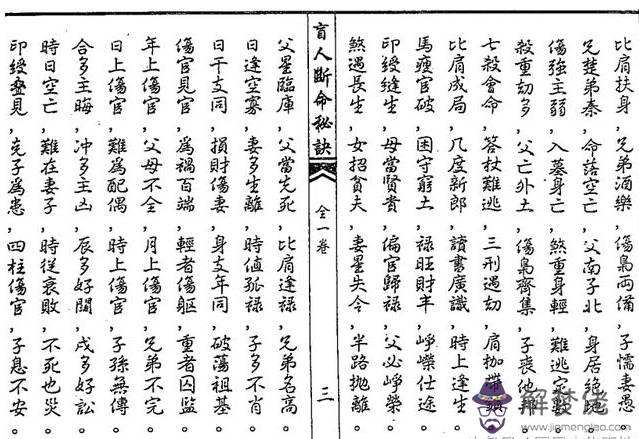 比肩扶身，兄弟酒樂，傷梟兩備，子懦妻愚
兄楚弟秦，命落空亡，父南子北，身居絕地
傷強主弱，入墓身亡，煞重身輕，難逃
殺重劫多，父亡外土，傷梟齊集，子喪他邦
七殺會命，笞杖難逃，三刑遇劫，肩枷帶鎖
比肩成局，几度新郎，讀書廣識，時上逢生
馬瘦官破，困守窮土，祿旺財丰，崢嶸仕途
印綬縫生，母當賢貴，偏官歸祿，父必崢榮
煞遇長生，女招貧夫，妻星失令，半路抛離。
盲人斷命秘訣
全一卷
三
父星臨庫，父當先死，比肩逢祿，兄弟名高。
日逢空寡，妻多生離，時値孤祿，子多不肖。
日干支同，損財傷妻，身支年同，破蕩祖基。
傷官見官，爲禍百端，輕者傷軀，重者囚監。
年上傷官，父母不全，月上傷官，兄弟不完。
日上傷官，難爲配偶，時上傷官，子孫無傳。
合多主晦，冲多主凶，辰多好鬭，戌多好訟。
時日空亡，難在妻子，時從衰敗，不死也災。
印綬疊見，克子爲患，四柱傷官，子息不安。
解夢佬
www.jiemenglao.com